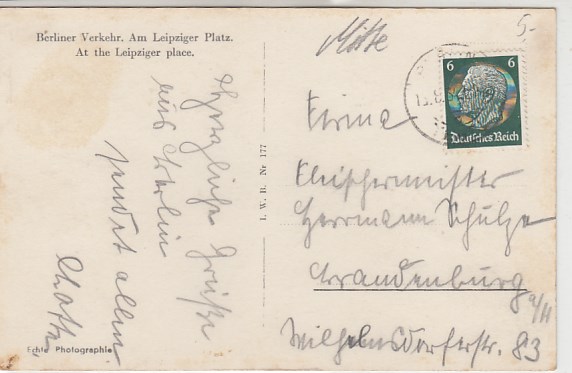 Berliner Verkehr. Am Leipziger Platz.
At the Leipziger place.
Herzliche Grüße
aus Berlin
sendet allen
I. W. B. Nr 177
Echte Photographie
Mitte
5.-
6 6
Deutsches Reich
Firma
Fleischermeister
Herrmann Schulze
Brandenburg a/H
Wilhelmsdorferstr. 83